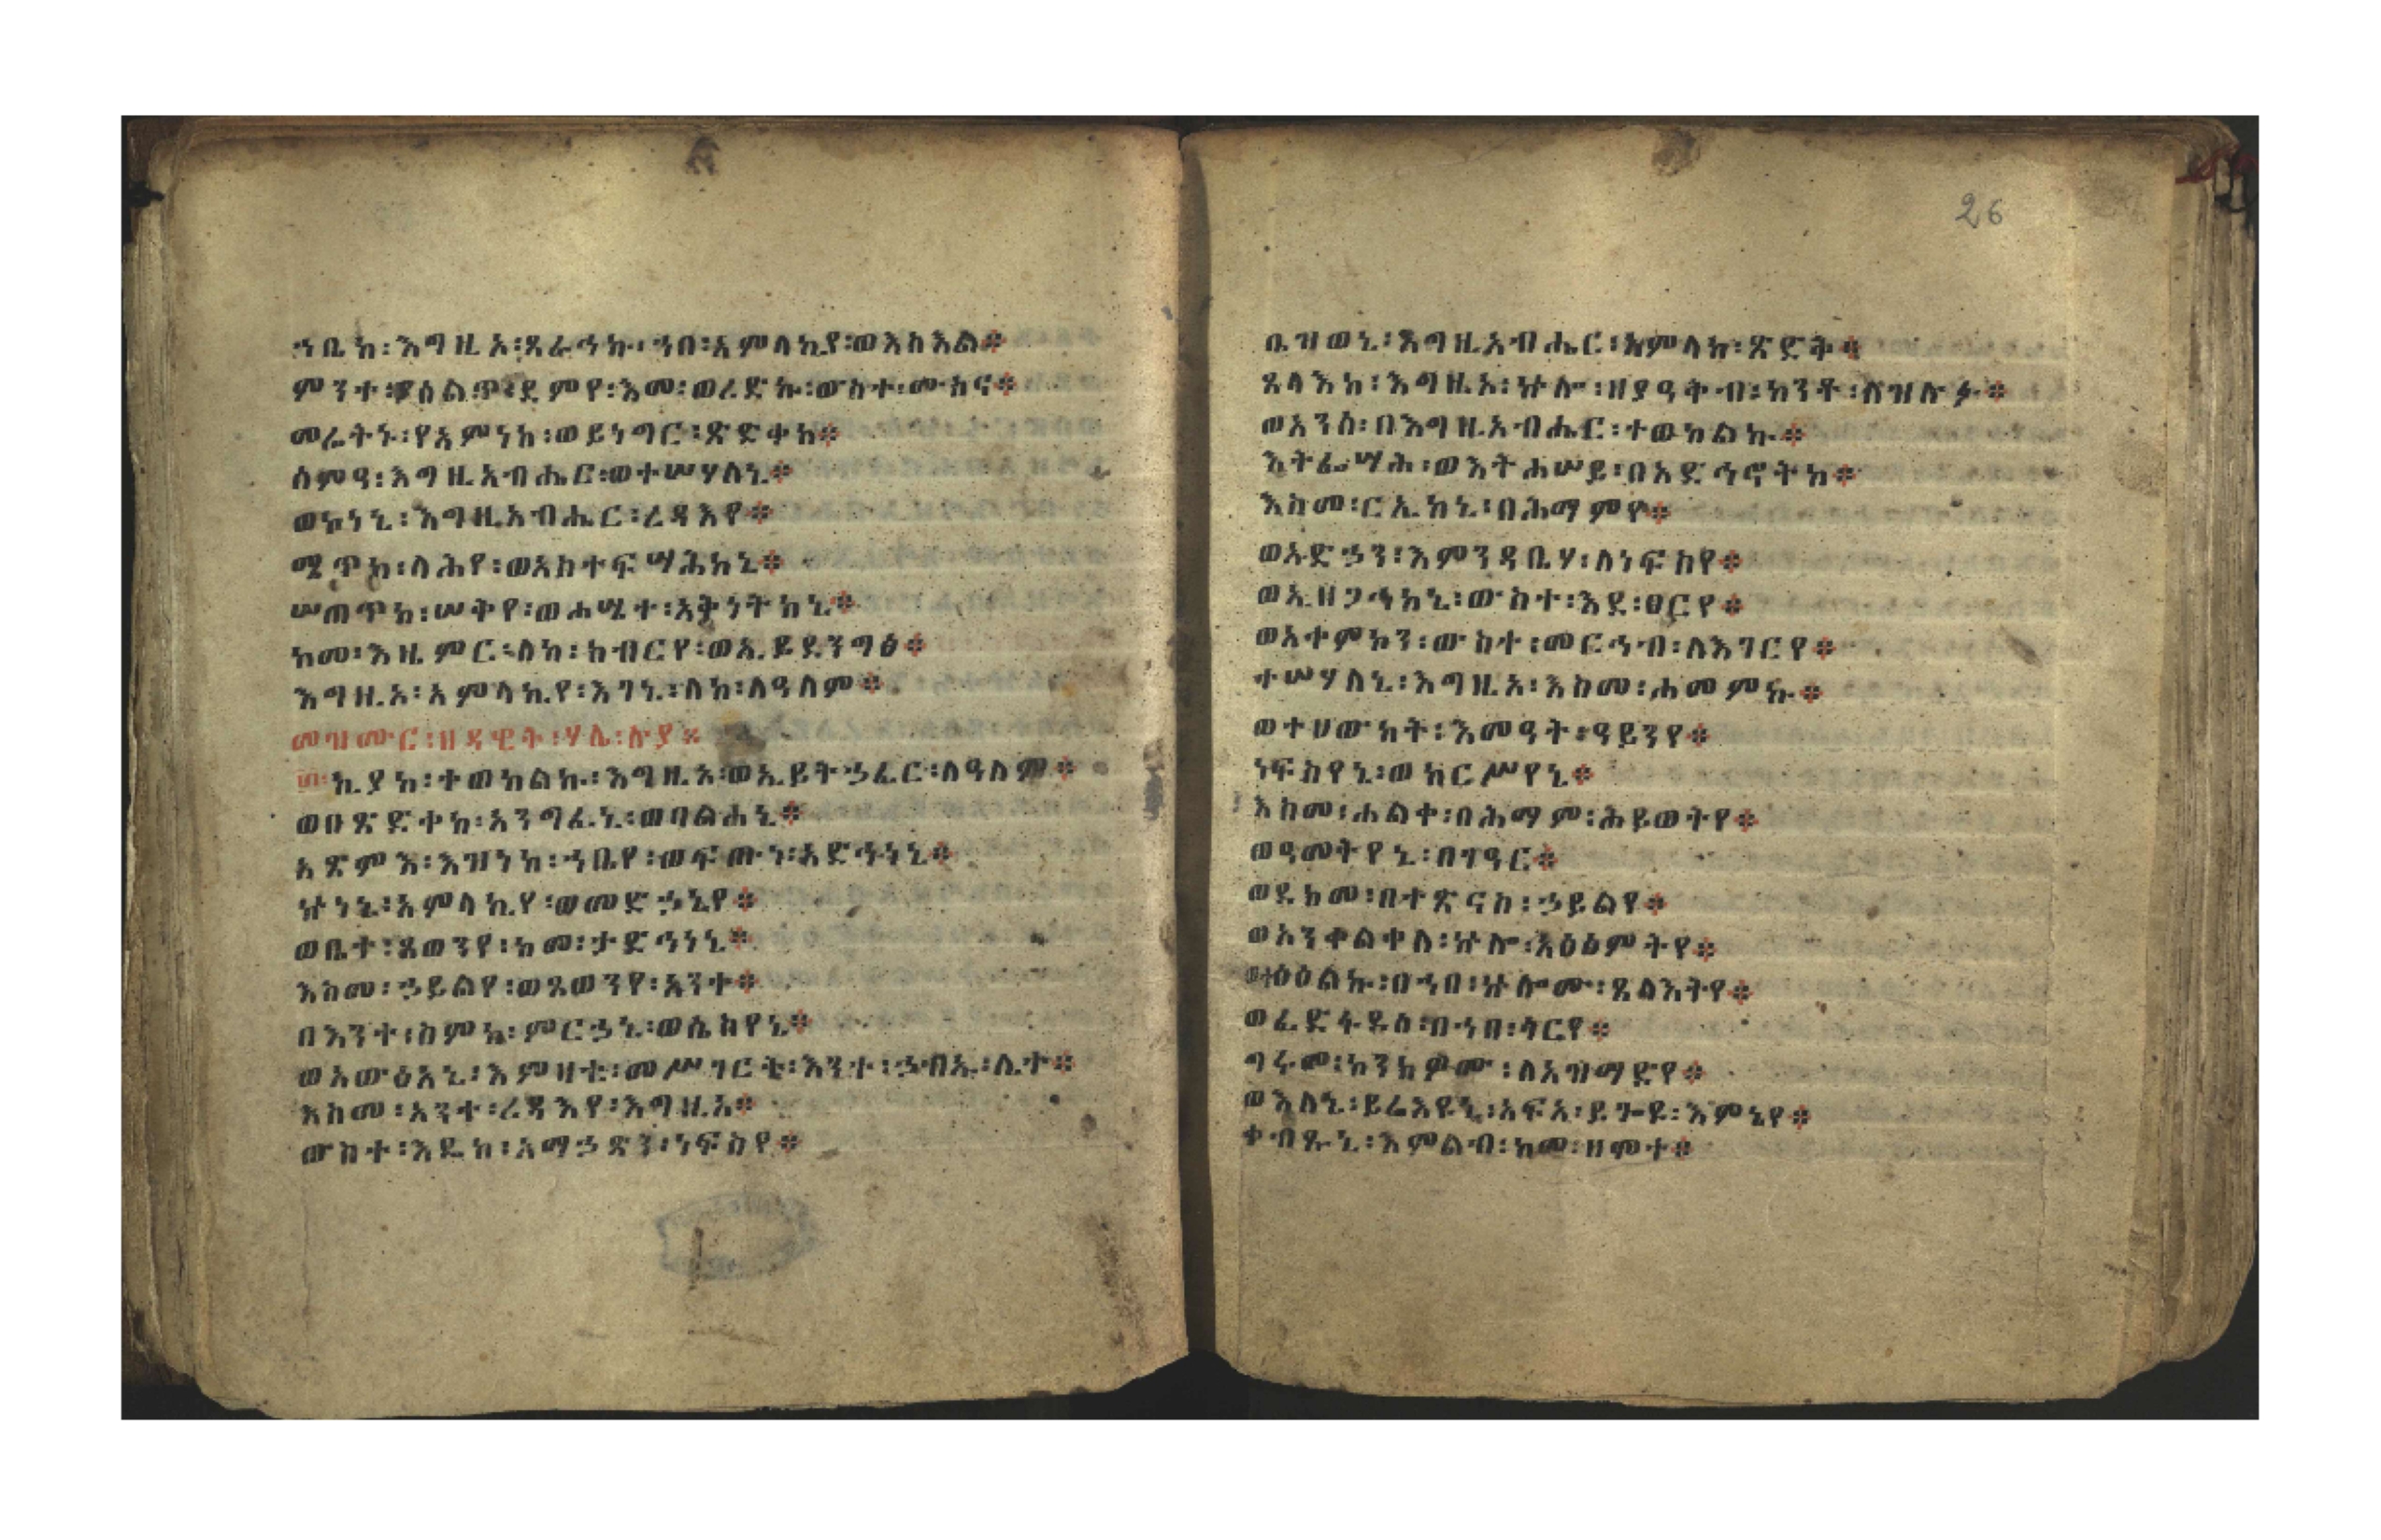 ኀቤከ፡እግዚኦ፡ጸራኅኩ፡ኀበ፡አምላኪየ፡ወእስእል፨
ምንተ፡ይበልጥ፡ደምየ፡እመ፡ወረድኩ፡ውስተ፡ሙስና፨
መሬትኑ፡የአምነከ፡ወይነግር፡ጽድቀከ፨
ሰምዓ፡እግዚአብሔር፡ወተሠሃለኒ፨
ወኮነኒ፡እግዚአብሔር፡ረዳእየ፨
ሜጥከ፡ላሕየ፡ወአስተፍሣሕከኒ፨
ሠጠጥከ፡ሠቅየ፡ወሐሤተ፡አቅነትከኒ፨
ከመ፡እዚምር፡ለከ፡ክብርየ፡ወኢይደንግፅ፨
እግዚኦ፡አምላኪየ፡እገኒ፡ለከ፡ለዓለም፨
መዝሙር፡ዘዳዊት፡ሃሌ፡ሉያ፨
፴ኪያከ፡ተወከልኩ፡እግዚኦ፡ወኢይትኃፈር፡ለዓለም፨
ወበጽድቀከ፡አንግፈኒ፡ወባልሐኒ፨
አጽምእ፡እዝነከ፡ኀቤየ፡ወፍጡነ፡አድኅነኒ፨
ኩነኒ፡አምላኪየ፡ወመድኃኒየ፨
ወቤተ፡ጸወንየ፡ከመ፡ታድኅነኒ፨
እስመ፡ኃይልየ፡ወጸወንየ፡አንተ፨
በእንተ፡ስምከ፡ምርኃኒ፡ወሴስየኒ፨
ወአውፅአኒ፡እምዛቲ፡መሥገርት፡እንተ፡ኃብኡ፡ሊተ፨
እስመ፡አንተ፡ረዳእየ፡እግዚኦ፨
ውስተ፡እዴከ፡አማኃፅን፡ነፍስየ፨
26
ቤዝወኒ፡እግዚአብሔር፡አምላከ፡ጽድቅ፨
ጸላእከ፡እግዚኦ፡ኵሎ፡ዘያዓቅብ፡ከንቶ፡ለዝሉፉ፨
ወአንሰ፡በእግዚአብሔር፡ተወከልኩ፨
እትፌሣሕ፡ወእትሐሠይ፡በአድኅኖትከ፨
እስመ፡ርኢከኒ፡በሕማምየ፨
ወአድኃን፡እምንዳቤሃ፡ለነፍስየ፨
ወኢዘጋሕከኒ፡ውስተ፡እደ፡ፀርየ፨
ወአቀምኮን፡ውስተ፡መርኅብ፡ለእገርየ፨
ተሠሃለኒ፡እግዚኦ፡እስመ፡ሐመምኩ፨
ወተሀውከት፡እመዓት፡ዓይንየ፨
ነፍስየኒ፡ወከርሥየኒ፨
እስመ፡ሐልቀ፡በሕማም፡ሕይወትየ፨
ወዓመትየኒ፡በገዓር፨
ወደክመ፡በተጽናስ፡ኃይልየ፨
ወአንቀልቀለ፡ኵሎ፡አዕፅምትየ፨
ወተዕዕልኩ፡በኀበ፡ኵሎሙ፡ጸላእትየ፨
ወፈድፋደሰ፡በኀበ፡ጎርየ፨
ግሩመ፡ኮንክዎሙ፡ለአዝማድየ፨
ወእለኒ፡ይሬእዩኒ፡አፍአ፡ይጐዩ፡እምኔየ፨
ቀብጹኒ፡እምልብ፡ከመ፡ዘሞተ፨